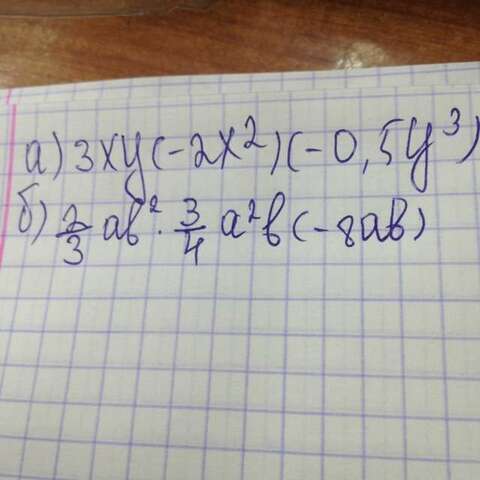 а) 3xy(-2x²)(-0,5y³)
б) 2/3 ab² · 3/4 a²b(-8ab)